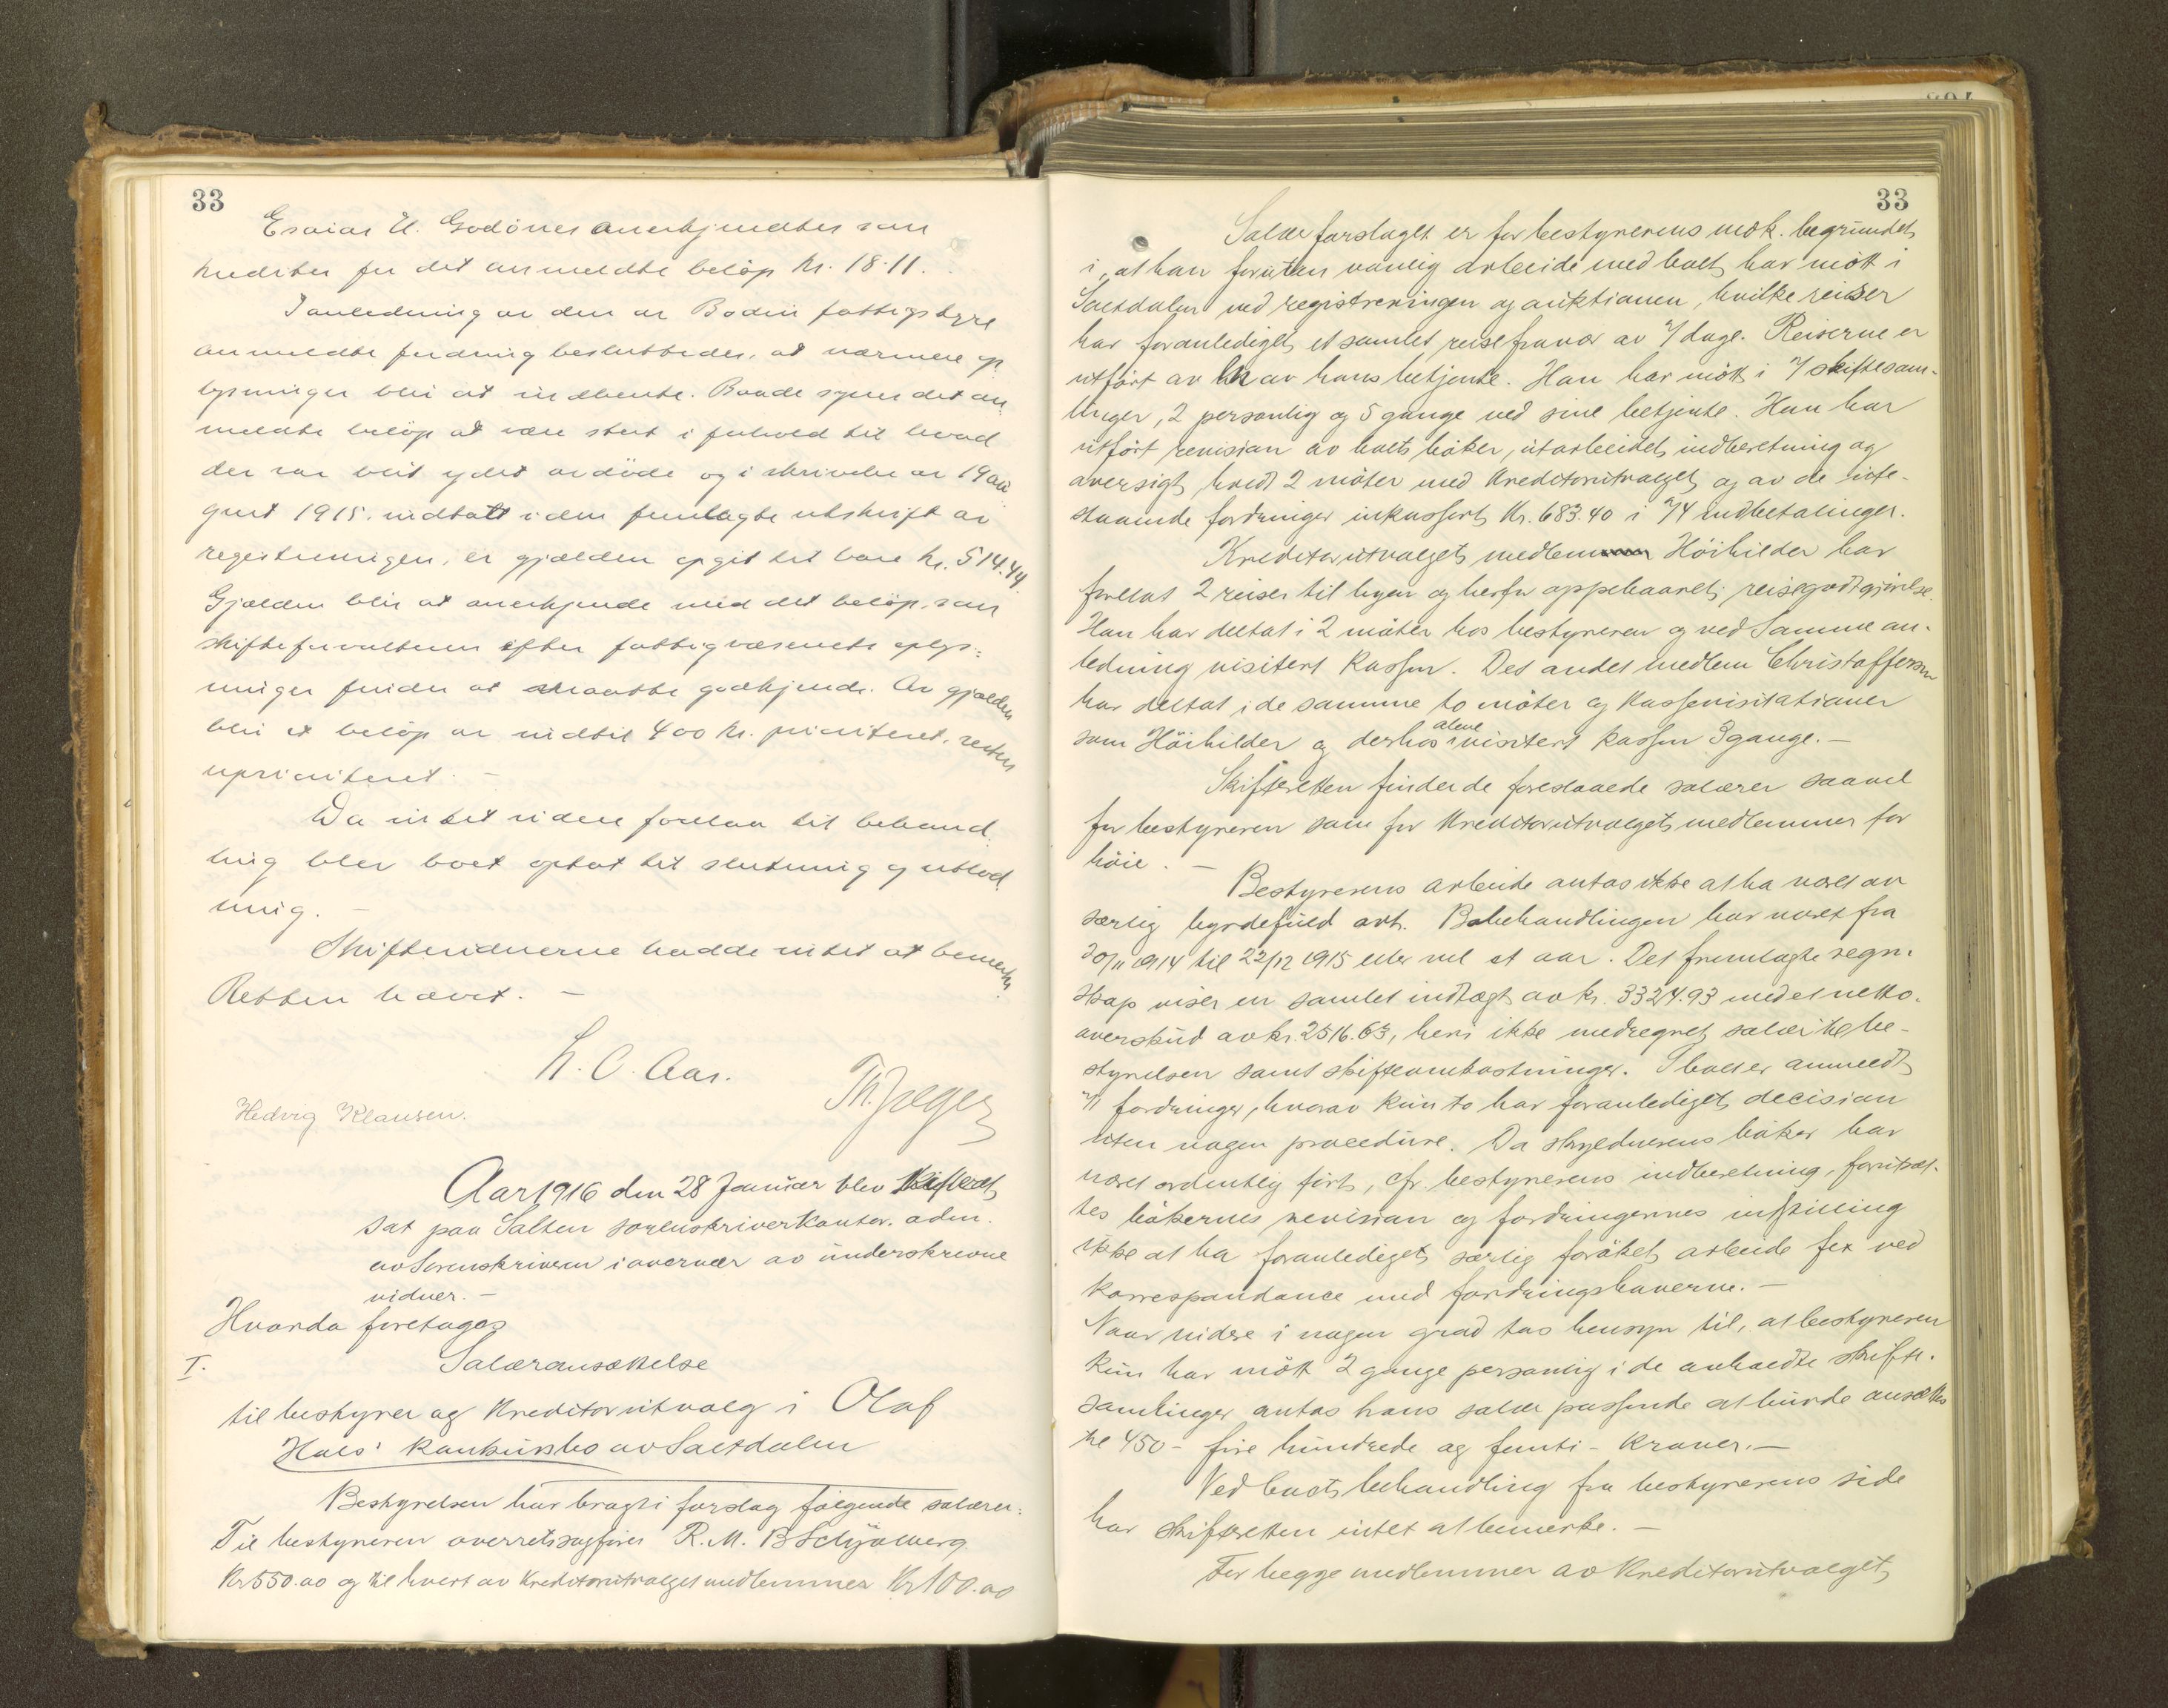 33
Esaias U. Godönes anerkjendtes som
kreditor for det anmeldte beløp kr. 18.11.
I anledning av den av Bodin fattigstyre
anmeldte fordring besluttedes, at nærmere op-
lysninger blir at indhente. Baade synes det an-
meldte beløp at være stort i forhold til hvad
der var blit ydet avdöde og i skrivelse av 19 au-
gust 1915. indtatt i den fremlagte utskrift av
registreringen, er gjælden opgit til bare kr. 514.44.
Gjælden blir at anerkjende med det beløp, som
skifteforvalteren efter fattigvæsenets oplys-
ninger finder at maatte godkjende. Av gjælden
blir et beløp av indtil 400 kr. prioritert, resten
uprioritert. —
Da intet videre forelaa til behand-
ling blev boet optat til slutning og utlod-
ning. —
Skiftevidnerne hadde intet at bemerke.
Retten hævet. —
K. O. Aas.
Hedvig Klausen. Th. Jæger
Aar 1916 den 28 Januar blev skifteret
sat paa Salten sorenskriverkontor. adm.
av Sorenskriveren i overvær av underskrevne
vidner. —
Hvorda foretoges
I. Salæransættelse
til bestyrer og kreditorutvalg i Olaf
Hals' konkursbo av Saltdalen
Bestyrelsen har bragt i forslag følgende salærer:
Til bestyreren overretssagfører R. M. B Schjølberg
Kr 550.00 og til hvert av kreditorutvalgets medlemmer Kr 100.00
33
Salærforslaget er for bestyrerens vedk. begrundet
i, at han foruten vanlig arbeide med boet har mött i
Saltdalen ved registreringen og auktionen, hvilke reiser
har foranlediget et samlet reisefravær av 7 dage. Reiserne er
utfört av en av hans betjente. Han har mött i 7 skiftesam-
linger, 2 personlig og 5 gange ved sine betjente. Han har
utfört revision av boets böker, utarbeidet indberetning og
oversigt, hvidt 2 möter med kreditorutvalget og av de ute-
staaende fordringer inkassert Kr. 683.40 i 74 indbetalinger.
Kreditorutvalgets medlem Höihilder har
foretat 2 reiser til byen og herfor oppebaaret reisegodtgjørelse.
Han har deltat i 2 möter hos bestyreren og ved samme an-
ledning visitert kassen. Det andet medlem Christoffersen
har deltat i de samme to möter og kassevisitationer
som Höihilder og derhos alene visitert kassen 3 gange. —
Skifteretten finder de foreslaaede salærer saavel
for bestyreren som for kreditorutvalgets medlemmer for
höie. —
Bestyrerens arbeide antas ikke at ha været av
særlig byrdefuld art. Bobehandlingen har været fra
30/11 1914 til 22/12 1915 eller vel et aar. Det fremlagte regn-
skap viser en samlet indtægt av kr. 3324.93 med et netto-
overskud av kr. 2516.63, heri ikke medregnet salær til be-
styrelsen samt skifteomkostninger. I boet er anmeldt
71 fordringer, hvorav kun to har foranlediget decision
uten nogen procedure. Da skyldnerens böker har
været ordentlig fört, cfr. bestyrerens indberetning, forutsæt-
tes bökernes revision og fordringernes indstilling
ikke at ha foranlediget særlig foröket arbeide fex ved
korrespondance med fordringshaverne. —
Naar videre i nogen grad tas hensyn til, at bestyreren
kun har mött 2 gange personlig i de anholdte skifte-
samlinger antas hans salær passende at burde ansættes
til 450 - fire hundrede og femti - kroner. —
Ved boets behandling fra bestyrerens side
har skifteretten intet at bemerke. —
For begge medlemmer av kreditorutvalget